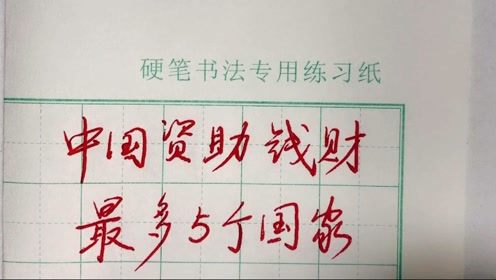 硬笔书法专用练习纸
中国资助钱财
最多5个国家